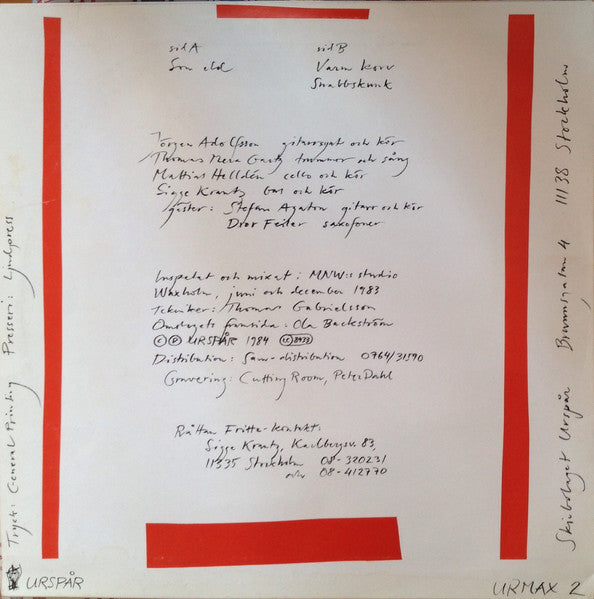 sid A
Som eld
sid B
Varm korv
Snabbskunk
Jörgen Adolfsson gitarrsyat och kör
Thomas Mera Gartz trummor och sång
Mattias Helldén cello och kör
Sigge Krantz bas och kör
gäster: Stefan Agaton gitarr och kör
Dror Feiler saxofoner
Inspelat och mixat i MNW:s studio
Waxholm, juni och december 1983
Tekniker: Thomas Gabrielsson
Omslagets framsida: Ola Backström
© ℗ URSPÅR 1984 LC 8933
Distribution: Sam-distribution 0764/31590
Gravering: Cutting Room, Peter Dahl
Råttan Fritte-kontakt:
Sigge Krantz, Karlbergsv. 83,
11335 Stockholm 08-320231
eller 08-412770
Tryck: General Printing Pressen: Ljudpress
Skivbolaget Urspår Brunnsgatan 4 11138 Stockholm
URSPÅR
URMAX 2